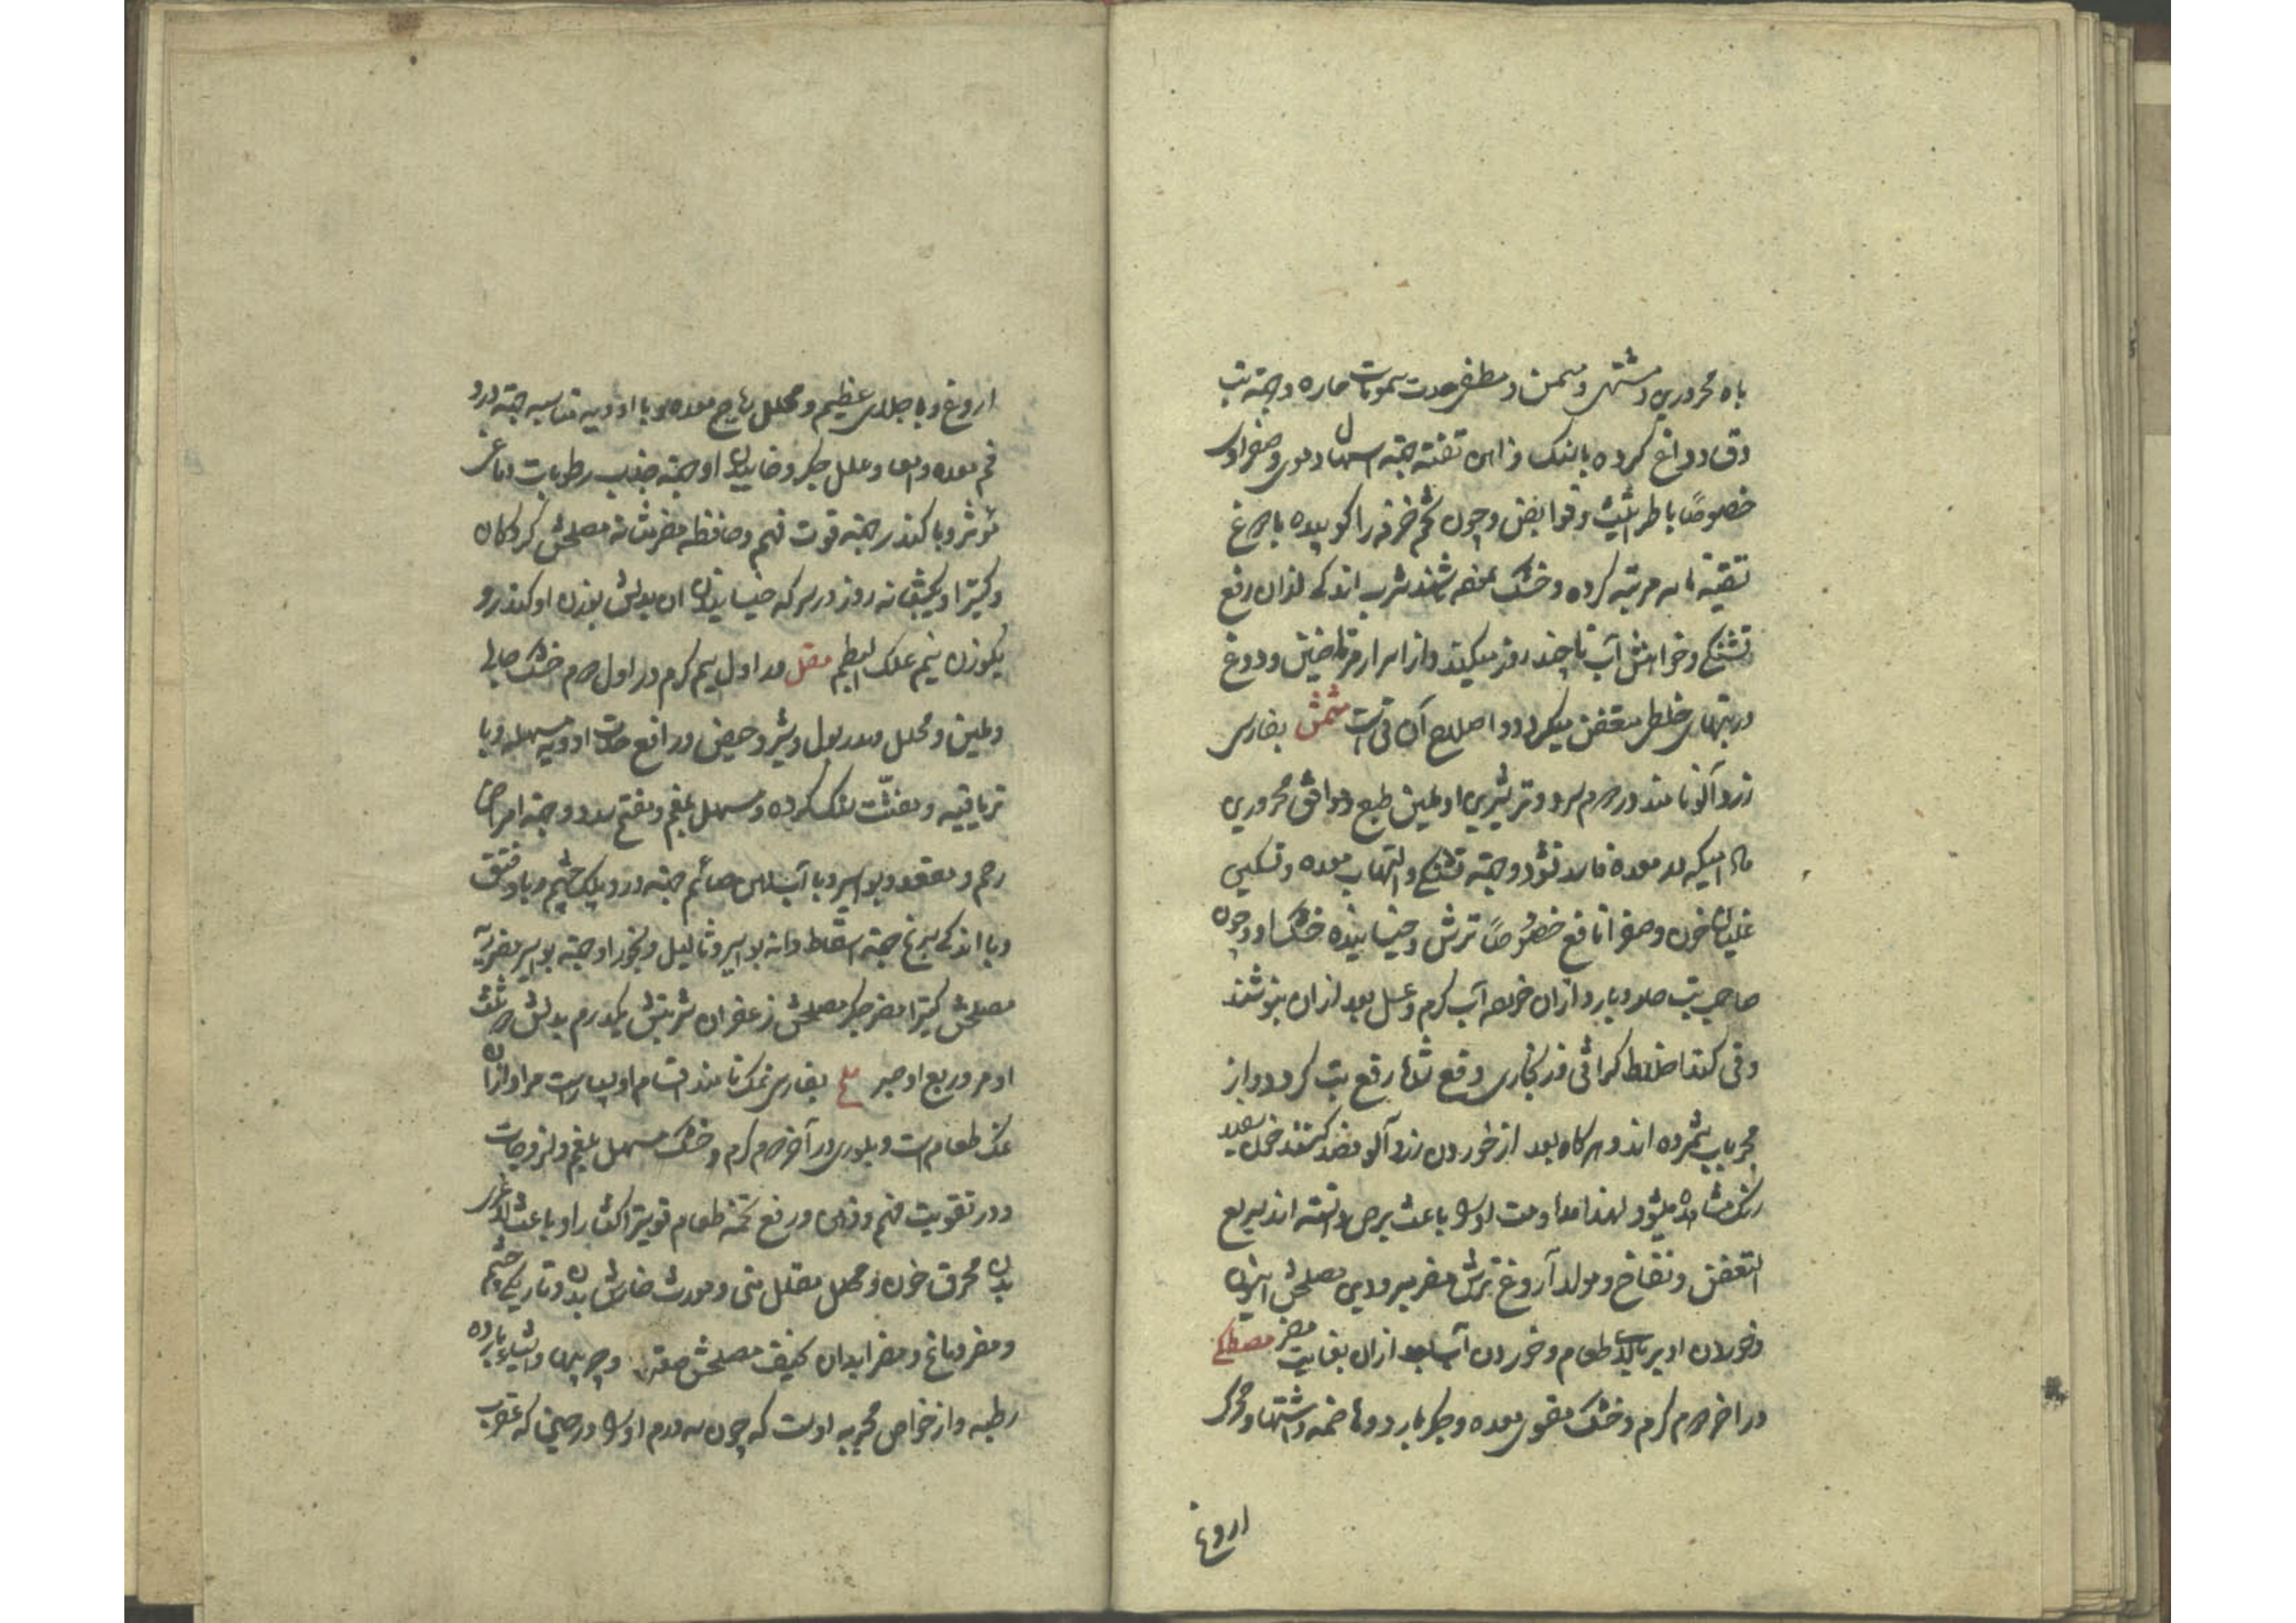 باه محرورین و مشتهی و مسمن و مطفی حدت سموات حاره و جهته تب
دق و دوغ کرده باینک و آهن تفته جهته اسهال دموی و صفراوی
خصوصاً با طراثیث و قوابض و چون تخم خرفه را کوبیده با دوغ
تا سه مرتبه کرده و خشک نموده شرب اندکی از آن رفع
تشنگی و خواهش آب تا چند روز میکند و از اسرار مرتاضین و دوغ
در تبهای خلطی متعفن میگردد و اصلاح آن قی است مشمش بفارسی
زردآلو نامند در دوم سرد و تر شیرین او ملین طبع و موافق محرورین
مادامیکه در معده فاسد نشود و جهته تشنگی و التهاب معده و تسکین
غلیان خون و صفرا نافع خصوصاً ترش و خیسانیده خشک او و چون
صاحب تب حار و بارد از آن خورده آب گرم و عسل بعد از آن بنوشند
و قی کنند اخلاط کراثی و زنجاری دفع شده رفع تب گردد و از
مجربات شمرده اند و هرگاه بعد از خوردن زردآلو فصد کنند خون سفید
رنگ مشاهده میشود لهذا مداومت او را باعث برص دانسته اند سریع
التعفن و نفاخ و مولد آروغ ترش مضر مبرودین مصلحش انیسون
و خوردن او بر بالای طعام و خوردن آب بعد از آن بغایت مضر مصطکی
در آخر دوم گرم و خشک مقوی معده و جگر بارد و هاضمه و اشتها و محرک
اروغ
اروغ و با جلای عظیم و محلل ریاح معده و با ادویه مناسبه جهته درد
فم معده و امعا و علل جگر و خاییدن او جهته جذب رطوبات دماغی
موثر و با کندر جهته قوت فهم و حافظه مضر مثانه مصلحش کردکان
و کتیرا و یکشبانه روز در سرکه خیسانیدن آن بدلش بوزن او کندر و
یکوزن نیم علک البطم مقل در اول سیم گرم و در اول دوم خشک جالی
و ملین و محلل و مدر بول و شیر و حیض و رافع حدت ادویه مسهله و با
تریاقیه و مفتت سنک کرده و مسهل بلغم و مفتح سدد و جهته امراض
رحم و مقعد و بواسیر و با آب دهن صائم جهته درد پلک چشم و باد فتق
و با اندکی سرکه جهته اسقاط دانه بواسیر و ثالیل و بخور او جهته بواسیر مضر ریه
مصلحش کتیرا مضر جگر مصلحش زعفران شربتش یکدرم بدلش دو ثلث
او مر و ربع او صبر ملح بفارسی نمک نامند اقسام او بسیارست مراد از آن
نمک طعام است و بلوری در آخر دوم گرم و خشک مسهل بلغم و لزوجات
و در تقویت فهم و ذهن و رفع تخمه طعام قویتر اکثار او باعث لاغری
بدن محرق خون و محلل مقلل منی و مورث خارش بدن و تاریکی چشم
و مضر دماغ و مضر ابدان نحیف مصلحش صعتر و چربیها و اشیاء بارده
رطبه و از خواص مجربه اوست که چون سه درم او را در حینی که عقرب